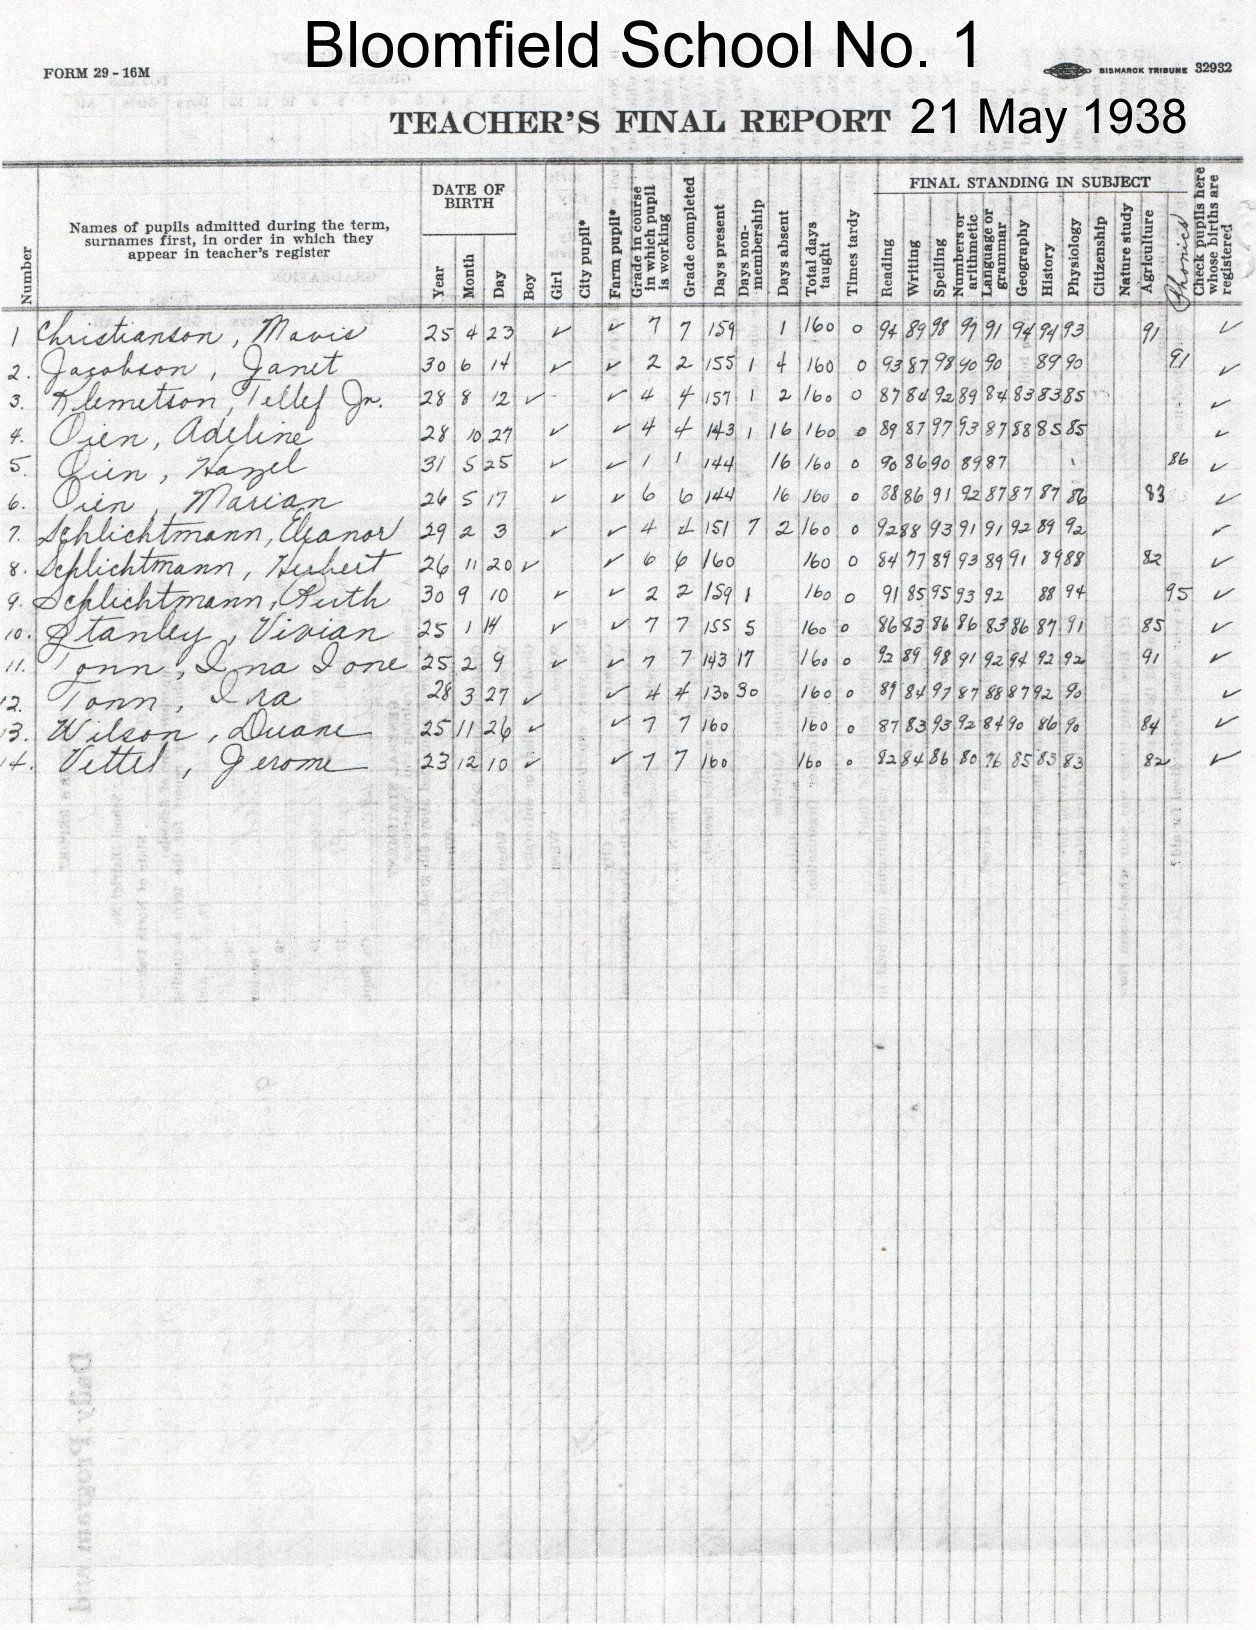 Bloomfield School No. 1
FORM 29 - 16M
BISMARCK TRIBUNE 32932
TEACHER'S FINAL REPORT 21 May 1938
Number
Names of pupils admitted during the term, surnames first, in order in which they appear in teacher's register
DATE OF BIRTH
Year Month Day
Boy
Girl
City pupil*
Farm pupil*
Grade in course in which pupil is working
Grade completed
Days present
Days non-membership
Days absent
Total days taught
Times tardy
FINAL STANDING IN SUBJECT
Reading
Writing
Spelling
Numbers or arithmetic
Language or grammar
Geography
History
Physiology
Citizenship
Nature study
Agriculture
Phonics
Check pupils here whose births are registered
1 Christianson, Mavis 25 4 23 ✓ ✓ 7 7 159 1 160 0 94 89 98 97 91 94 94 93 91 ✓
2. Jacobson, Janet 30 6 14 ✓ ✓ 2 2 155 1 4 160 0 93 87 98 90 90 89 90 91 ✓
3. Klemetson, Tellef Jr. 28 8 12 ✓ ✓ 4 4 157 1 2 160 0 87 84 92 89 84 83 83 85 ✓
4. Oien, Adeline 28 10 27 ✓ ✓ 4 4 143 1 16 160 0 89 87 97 93 87 88 85 85 ✓
5. Oien, Hazel 31 5 25 ✓ ✓ 1 1 144 16 160 0 90 86 90 89 87 86 ✓
6. Oien, Marian 26 5 17 ✓ ✓ 6 6 144 16 160 0 88 86 91 92 87 87 87 86 83 ✓
7. Schlichtmann, Eleanor 29 2 3 ✓ ✓ 4 4 151 7 2 160 0 92 88 93 91 91 92 89 92 ✓
8. Schlichtmann, Herbert 26 11 20 ✓ ✓ 6 6 160 160 0 84 77 89 93 89 91 89 88 82 ✓
9. Schlichtmann, Ruth 30 9 10 ✓ ✓ 2 2 159 1 160 0 91 85 95 93 92 88 94 95 ✓
10. Stanley, Vivian 25 1 14 ✓ ✓ 7 7 155 5 160 0 86 83 86 86 83 86 87 91 85 ✓
11. Tonn, Ina Ione 25 2 9 ✓ ✓ 7 7 143 17 160 0 92 89 98 91 92 94 92 92 91 ✓
12. Tonn, Ira 28 3 27 ✓ ✓ 4 4 130 30 160 0 89 84 97 87 88 87 92 90 ✓
13. Wilson, Duane 25 11 26 ✓ ✓ 7 7 160 160 0 87 83 93 92 84 90 86 90 84 ✓
14. Vettel, Jerome 23 12 10 ✓ ✓ 7 7 160 160 0 82 84 86 80 76 85 83 83 82 ✓